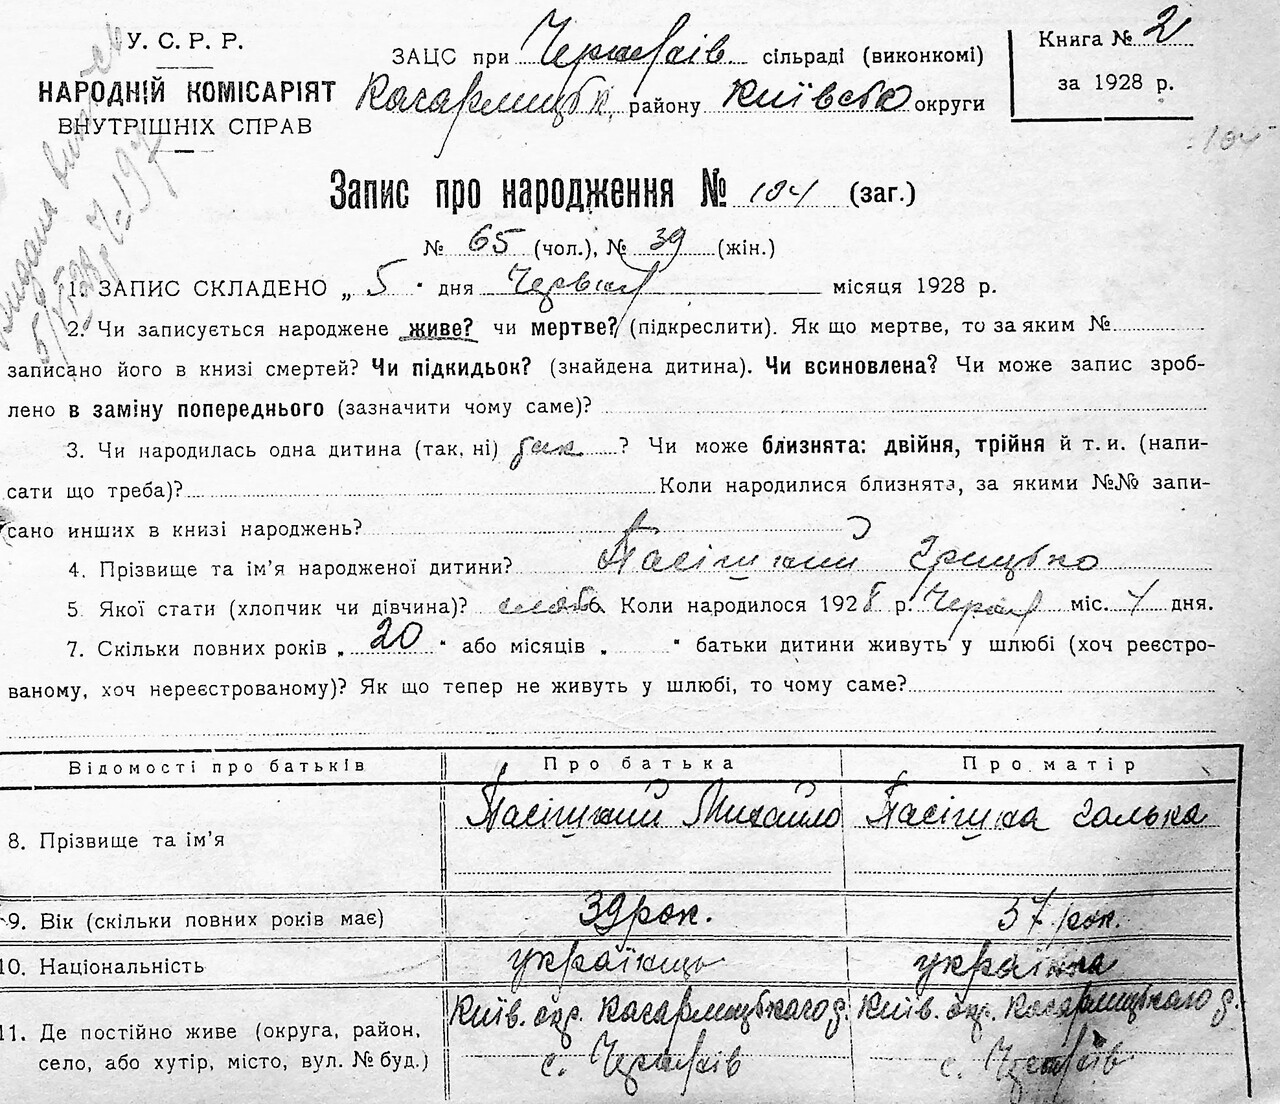 У. С. Р. Р.
НАРОДНІЙ КОМІСАРІЯТ
ВНУТРІШНІХ СПРАВ
ЗАЦС при сільраді (виконкомі)
Кагарлицьк. району Київсько округи
Книга № 2
за 1928 р.
104
Запис про народження № 104 (заг.)
№ 65 (чол.), № 39 (жін.)
1. ЗАПИС СКЛАДЕНО „ 5 " дня Червня місяця 1928 р.
2. Чи записується народжене живе? чи мертве? (підкреслити). Як що мертве, то за яким №
записано його в книзі смертей? Чи підкидьок? (знайдена дитина). Чи всиновлена? Чи може запис зроб-
лено в заміну попереднього (зазначити чому саме)?
3. Чи народилась одна дитина (так, ні) так ? Чи може близнята: двійня, трійня й т. и. (напи-
сати що треба)? Коли народилися близнята, за якими №№ запи-
сано инших в книзі народжень?
4. Прізвище та ім'я народженої дитини? Пасішний Грицько
5. Якої стати (хлопчик чи дівчина)? Коли народилося 1928 р. Червня міс. дня.
7. Скільки повних років „ 20 " або місяців „ " батьки дитини живуть у шлюбі (хоч реєстро-
ваному, хоч нереєстрованому)? Як що тепер не живуть у шлюбі, то чому саме?
Відомості про батьків Про батька Про матір
8. Прізвище та ім'я Пасішний Михайло Пасішна Галька
9. Вік (скільки повних років має) 39 рок. 37 рок.
10. Національність українць українка
11. Де постійно живе (округа, район, Київ. окр. Кагарлицького р. Київ. окр. Кагарлицького р.
село, або хутір, місто, вул. № буд.) с. с.